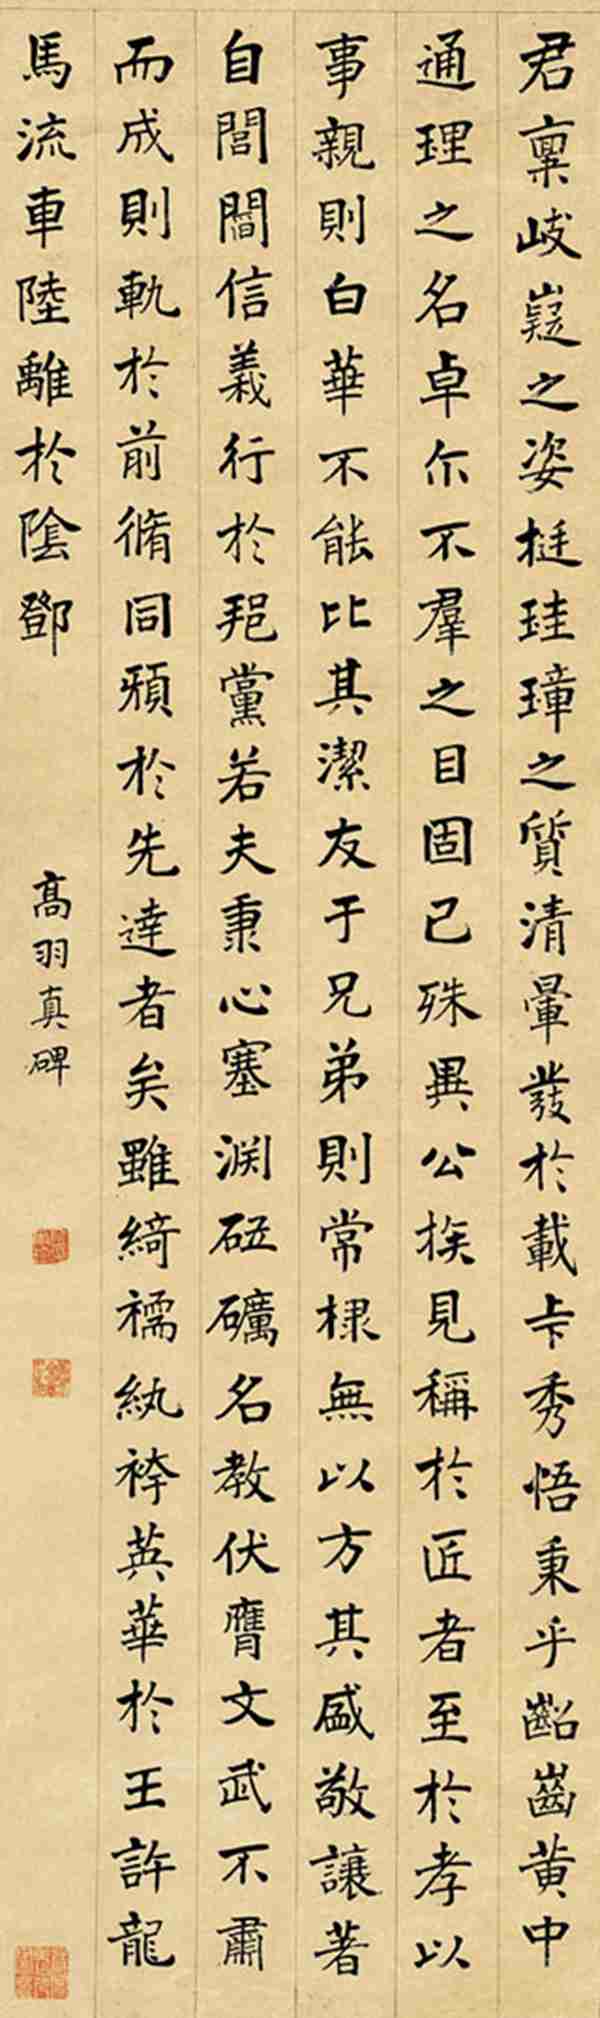 君稟岐嶷之姿挺珪璋之質清暈發於載卡秀悟秉乎齠齒黃中
通理之名卓尒不羣之目固已殊異公族見稱於匠者至於孝以
事親則白華不能比其潔友于兄弟則常棣無以方其盛敬讓著
自閭閻信義行於邦黨若夫秉心塞淵砥礪名教伏膺文武不肅
而成則軌於前脩同頻於先達者矣雖綺襦紈袴英華於王許龍
馬流車陸離於陰鄧
高羽真碑